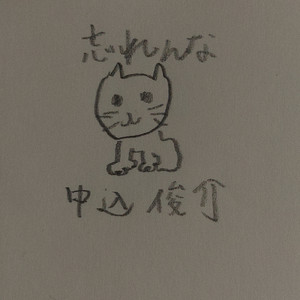 忘れんな
申込 俊介